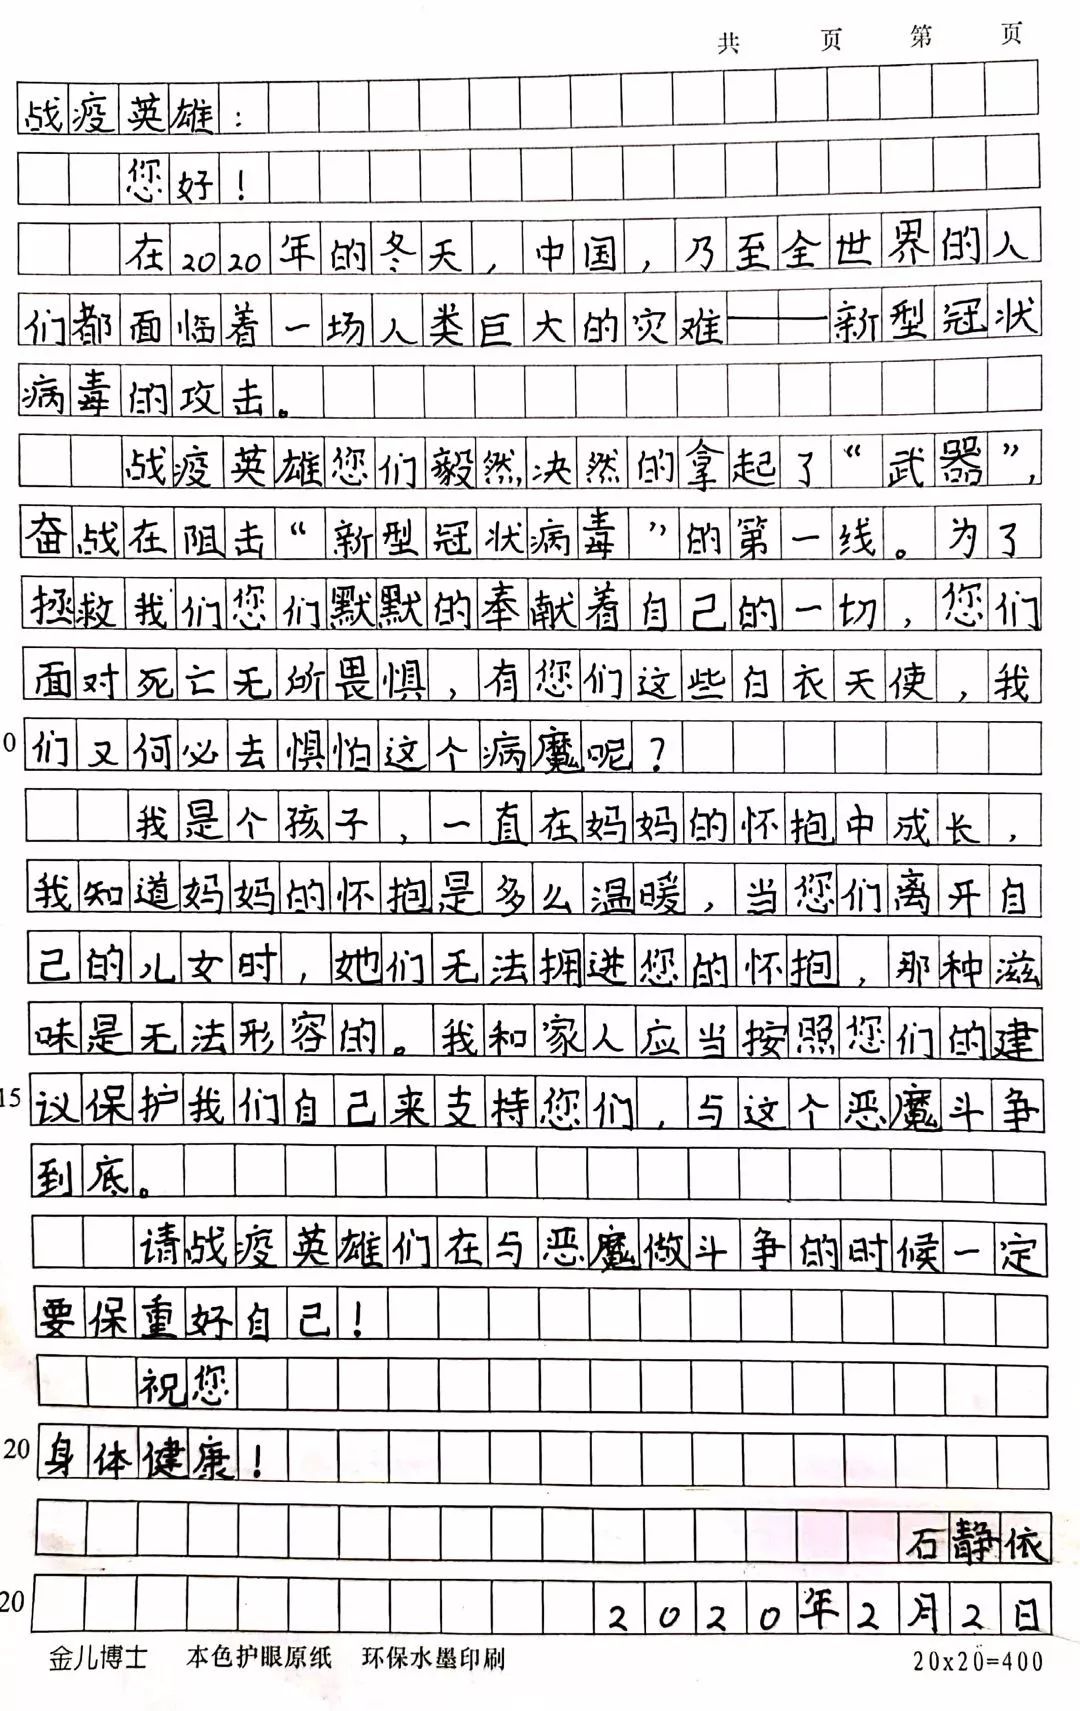 共 页 第 页
战疫英雄：
您好！
在2020年的冬天，中国，乃至全世界的人
们都面临着一场人类巨大的灾难——新型冠状
病毒的攻击。
战疫英雄您们毅然决然的拿起了“武器”，
奋战在阻击“新型冠状病毒”的第一线。为了
拯救我们您们默默的奉献着自己的一切，您们
面对死亡无所畏惧，有您们这些白衣天使，我
0 们又何必去惧怕这个病魔呢？
我是个孩子，一直在妈妈的怀抱中成长，
我知道妈妈的怀抱是多么温暖，当您们离开自
己的儿女时，她们无法拥进您的怀抱，那种滋
味是无法形容的。我和家人应当按照您们的建
15 议保护我们自己来支持您们，与这个恶魔斗争
到底。
请战疫英雄们在与恶魔做斗争的时候一定
要保重好自己！
祝您
20 身体健康！
石静依
20 2020年2月2日
金儿博士 本色护眼原纸 环保水墨印刷 20x20=400